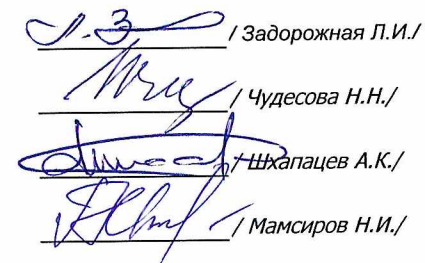 / Задорожная Л.И./
/ Чудесова Н.Н./
/ Шхапацев А.К./
/ Мамсиров Н.И./